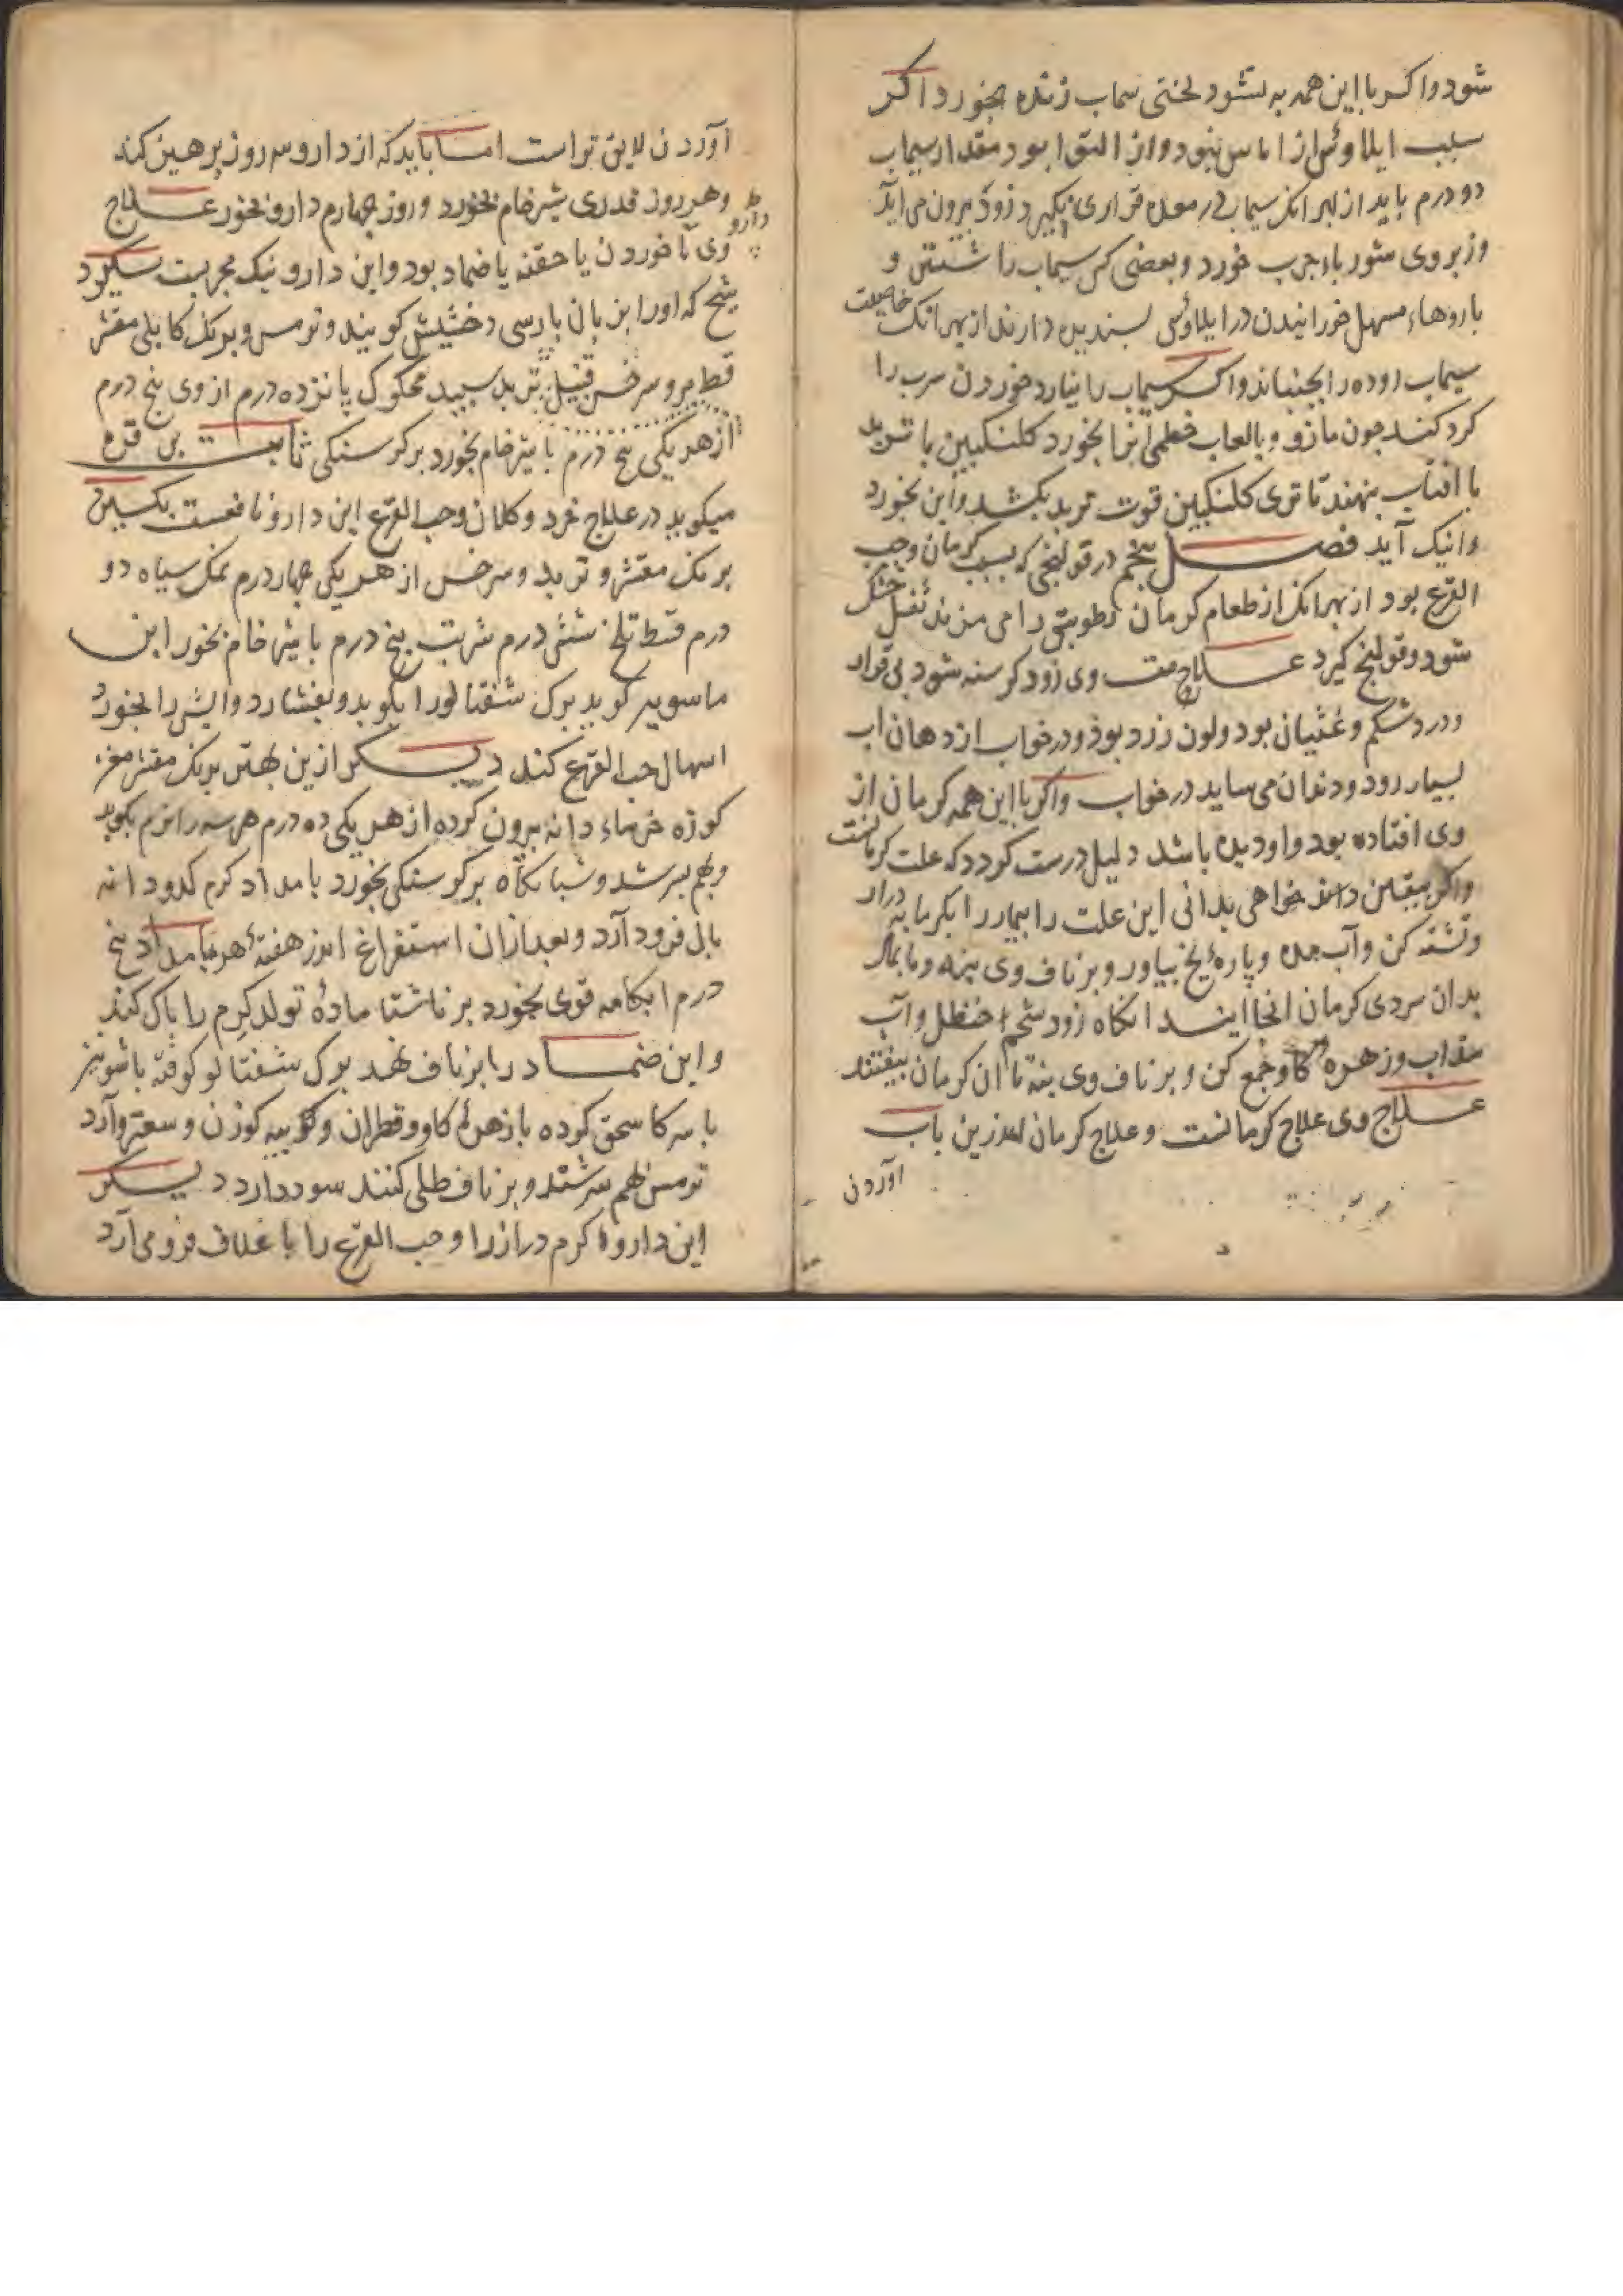 شود واکر با این همه به نشود لختی سیماب زنده بخورد اکر
سبب ایلاوس از اماس نبود و از التوا بود مقدار سیماب
دو درم باید از بهر انک سیماب در معده قراری نکیرد زود بیرون می آید
وز بر وی شوربا چرب خورد و بعضی کس سیماب را شستن و
باروهاء مسهل خورانیدن در ایلاوس بسندیده دارند از بهر انک خاصیت
سیماب روده را بجنباند واکر سیماب را نیارد خوردن سرب را
کرد کنند جون مازو و بالعاب خطمی انرا بخورد کلنکبین با تربد
با افتاب بنهند تا تری کلنکبین قوت تربد بکشد واین بخورد
وانیک آید فصل بنجم در قولنجی که بسبب کرمان وحب
القرع بود از بهر انک از طعام کرمان رطوبتی را می مزند ثفل خشک
شود وقولنج کیرد علامت وی زود کرسنه شود بی قرار
ودرد شکم وغثیان بود ولون زرد بوذ ودر خواب از دهان اب
بسیار رود ودندان می ساید در خواب واکر با این همه کرمان از
وی افتاده بود واو دیده باشد دلیل درست کردد که علت کرمانست
واکر بیقین خواهی بدانی این علت را بیمار را بکرمابه درار
وتشنه کن وآب مده وپارهٔ یخ بیاور وبر ناف وی بنه
بدان سردی کرمان انجا ایند انکاه زود شحم حنظل وآب
سداب وزهره کاو جمع کن و بر ناف وی بنه تا ان کرمان بیفتند
علاج وی علاج کرمانست وعلاج کرمان اندرین باب
اوردن
اوردن لایق تر است اما باید که از دارو سه روز پرهیز کند
وهر روز قدری شیر خام بخورد وروز چهارم دارو بخورد علاج
دارو
وی تا خوردن یا حقنه یا ضماد بود واین دارو نیک مجربست بکیرد
شیح که اورا بزبان بارسی دخشیش کویند وترمس وبرنک کابلی مقشر
وسرخس قنبیل تربد سبید محکوک پانزده درم از وی بنج درم
از هر یکی بنج درم با شیر خام بخورد بر کرسنکی ثابت بن قره
میکوید در علاج خرد وکلان وحب القرع این دارو نافعست بکیرد
برنک مقشر وتربد وسرخس از هر یکی جهار درم نمک سیاه دو
درم قسط تلخ شش درم شربت بنج درم با شیر خام بخورد ابن
ماسویه کوید برک شفتالو را بکوبد وبفشارد وابش را بخورد
اسهال حب القرع کند دیکر ازین بهتر برنک مقشر مغز
کوزه خرماء دانه بیرون کرده از هر یکی ده درم هر سه را نرم بکوبد
وبهم بسرشد وشبانکاه بر کرسنکی بخورد بامداد کرم کدودانه
باک فرود آرد وبعد ازان استفراغ اندر هفتهٔ هر بامداد بنج
درم ابکامه قوی بخورد بر ناشتا مادهٔ تولد کرم را باک کند
واین ضماد را بر ناف نهد برک شفتالو کوفته با شونیز
با سرکا سحق کرده با زهرهٔ کاو وقطران وسعتر وآرد
ترمس بهم سرشتند وبر ناف طلی کنند سود دارد دیکر
این داروها کرم دراز را وحب القرع را با غلاف فرو می آرد